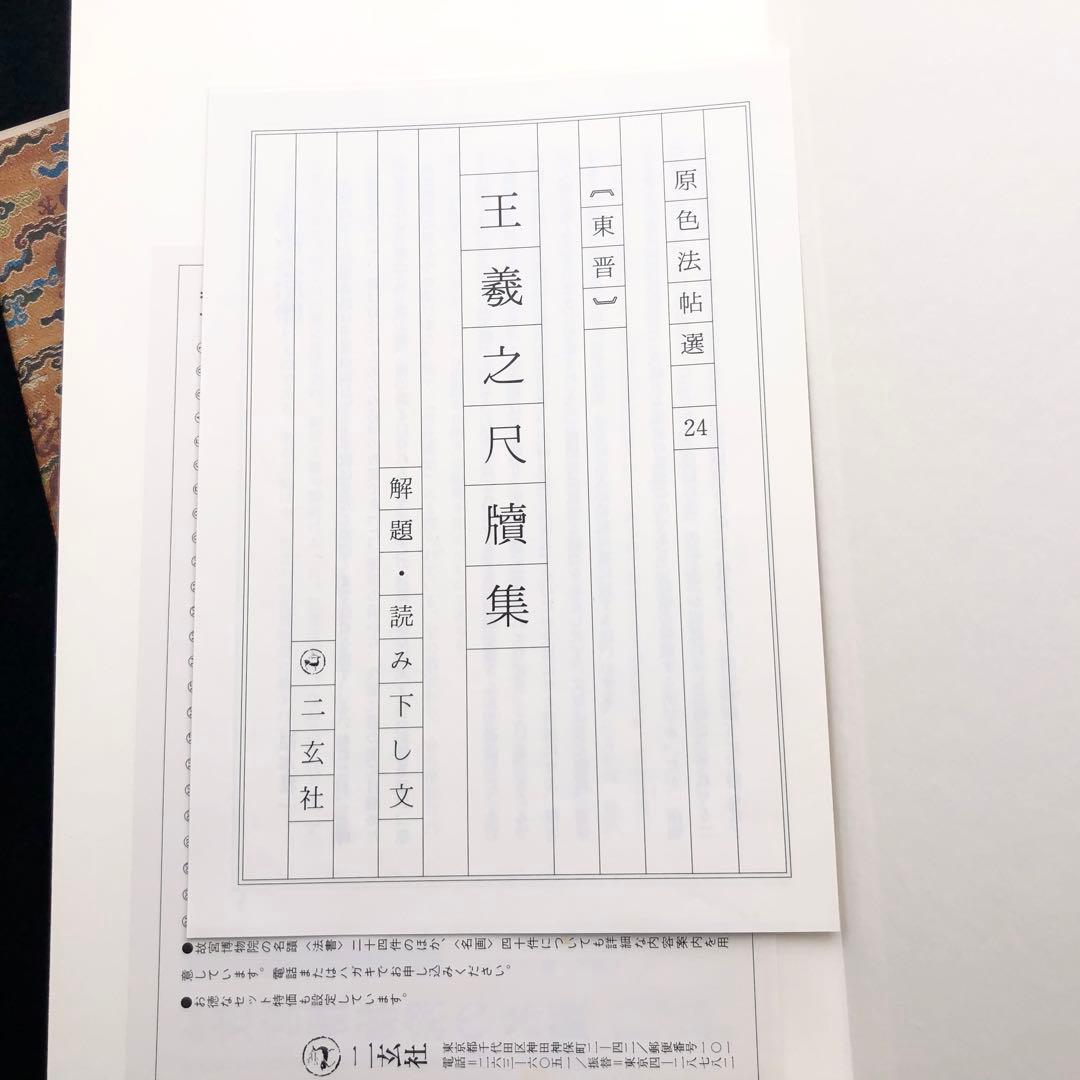 原色法帖選 24
〘東晋〙
王羲之尺牘集
解題・読み下し文
二玄社
●故宮博物院の名蹟〈法書〉二十四件のほか、〈名画〉四十件についても詳細な内容案内を用
意しています。電話またはハガキでお申し込みください。
●お徳なセット特価も設定しています。
二玄社
東京都千代田区神田神保町二ー四二/郵便番号一〇一
電話=二六三ー六〇五一/振替=東京四ー二八七八二